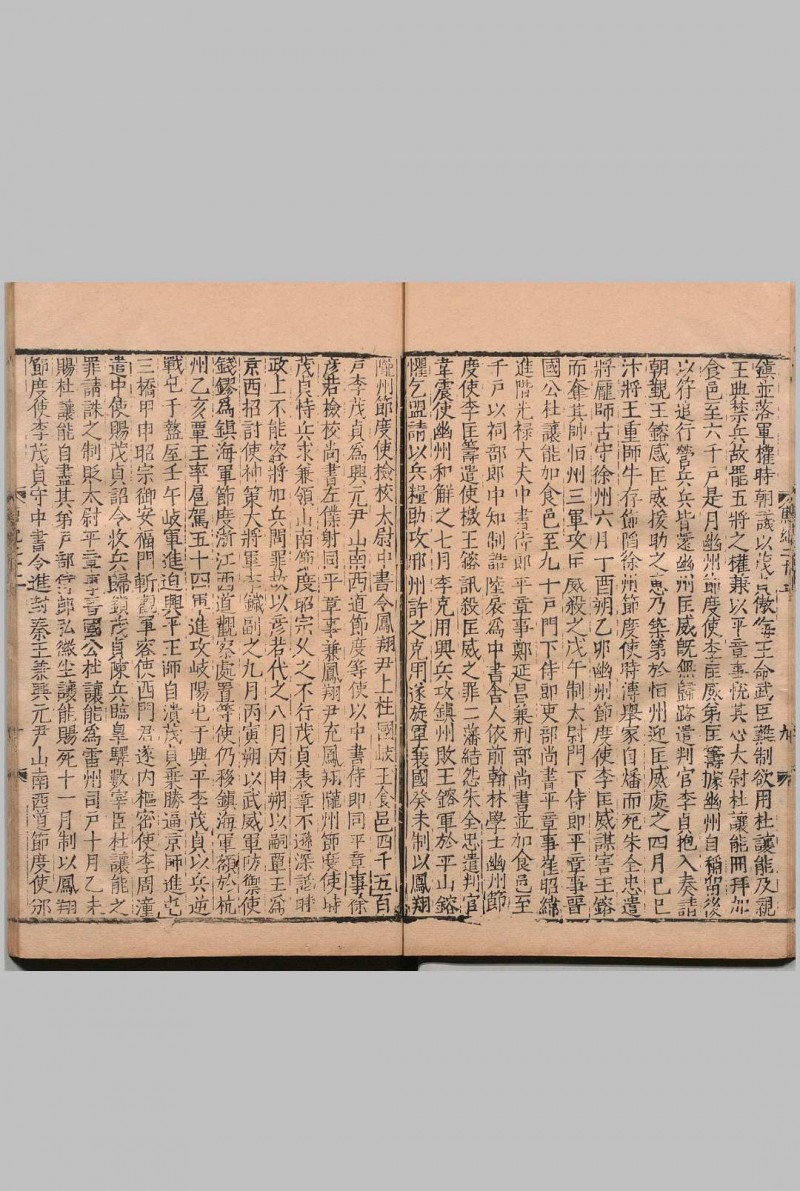 鎮並落軍權時朝議以茂貞傲侮王命武臣難制欲用杜讓能及親
王典禁兵故罷五將之權兼以平章事悅其心太尉杜讓能冊拜加
食邑至六千戶是月幽州節度使李匡威弟匡籌據幽州自稱留後
以符追行營兵兵皆還幽州匡威既無歸路遣判官李貞抱入奏請
朝覲王鎔感匡威援助之惠乃築第於恒州迎匡威處之四月己巳
汴將王重師牛存節陷徐州節度使時溥舉家自燔而死朱全忠遣
將龐師古守徐州六月丁酉朔乙卯幽州節度使李匡威謀害王鎔
而奪其帥恒州三軍攻匡威殺之戊午制太尉門下侍郎平章事晉
國公杜讓能加食邑至九千戶門下侍郎吏部尚書平章事崔昭緯
進階光祿大夫中書侍郎平章事鄭延昌兼刑部尚書並加食邑至
千戶以祠部郎中知制誥陸扆為中書舍人依前翰林學士幽州節
度使李匡籌遣使檄王鎔訊殺匡威之罪二藩結怨朱全忠遣判官
韋震使幽州和解之七月李克用興兵攻鎮州敗王鎔軍於平山鎔
懼乞盟請以兵糧助攻邢州許之克用遂旋軍襄國癸未制以鳳翔
隴州節度使檢校太尉中書令鳳翔尹上柱國岐王食邑四千五百
戶李茂貞為興元尹山南西道節度等使以中書侍郎同平章事徐
彥若檢校尚書左僕射同平章事兼鳳翔尹充鳳翔隴州節度使時
茂貞恃兵求兼領山南節度昭宗久之不行茂貞表章不遜深詆時
政上不能容將加兵問罪故以彥若代之八月丙申朔以嗣覃王為
京西招討使神策大將軍李鐬副之九月丙寅朔以武威軍防禦使
錢鏐為鎮海軍節度浙江西道觀察處置等使仍移鎮海軍額於杭
州乙亥覃王率扈駕五十四軍進攻岐陽屯于興平李茂貞以兵逆
戰屯于盩厔壬午岐軍進迫興平王師自潰茂貞乘勝逼京師進屯
三橋甲申昭宗御安福門斬觀軍容使西門君遂內樞密使李周潼
遣中使賜茂貞詔令收兵歸鎮茂貞陳兵臨皋驛數宰臣杜讓能之
罪請誅之制貶太尉平章事晉國公杜讓能為雷州司戶十月乙未
賜杜讓能自盡其弟戶部侍郎弘徽坐讓能賜死十一月制以鳳翔
節度使李茂貞守中書令進封秦王兼興元尹山南西道節度使邠